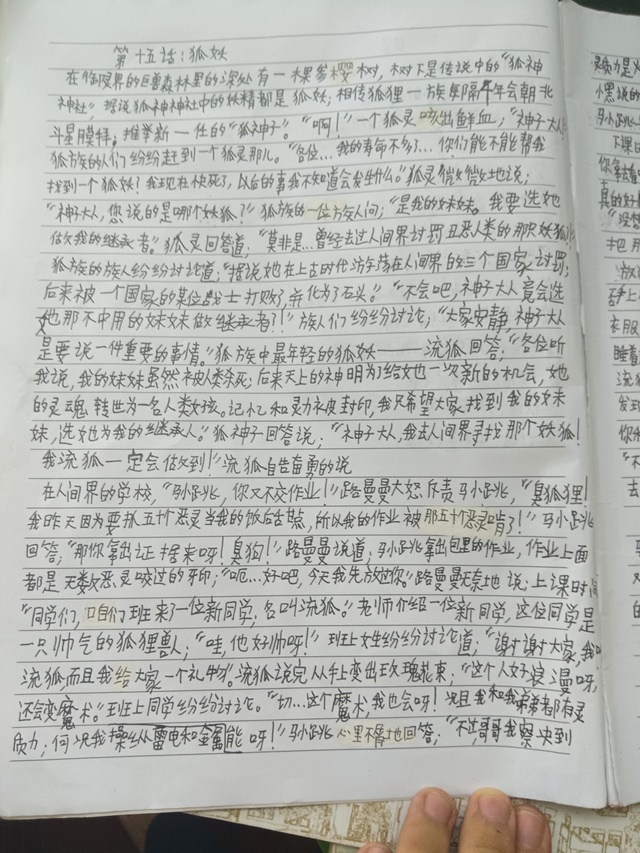 第十五话:狐妖
在临限界的巨兽森林里的深处有一棵参樱树,树下是传说中的“狐神
神社”,据说狐神神社中的妖精都是狐妖;相传狐狸一族每隔千年会朝北
斗星膜拜,推举新一任的“狐神子”。“啊!”一个狐灵咳出鲜血,“神子大人!”
狐族的人们纷纷赶到一个狐灵那儿。“各位…我的寿命不多了…你们能不能帮我
找到一个狐妖?我现在快死了,以后的事我不知道会发生什么。”狐灵微微地说;
“神子大人,您说的是哪个妖狐?”狐族的一位方族人问;“是我的妹妹。我要选她
做我的继承者。”狐灵回答道;“莫非是…曾经去过人间界讨罚丑恶人类的那只妖狐!”
狐族的族人纷纷讨论道;“据说她在上古时代游荡在人间界的三个国家讨罚;
后来被一个国家的某位战士打败了,并化为了石头。”“不会吧,神子大人竟会选
她那不中用的妹妹做继承者?!”族人们纷纷讨论;“大家安静,神子大人
是要说一件重要的事情。”狐族中最年轻的狐妖——流狐回答;“各位听
我说,我的妹妹虽然被人类杀死;后来天上的神明为了给她一次新的机会,她
的灵魂转世为一名人类女孩。记忆和灵力被封印,我只希望大家找到我的妹
妹,选她为我的继承人。”狐神子回答说;“神子大人,我去人间界寻找那个妖狐!
我流狐一定会做到!”流狐自告奋勇的说
在人间界的学校,“马小跳,你又不交作业!”路曼曼大怒斥责马小跳,“臭狐狸!
我昨天因为要抓五十个恶灵当我的饭后甜点,所以我的作业被那五十个恶灵啃了!”马小跳
回答;“那你拿出证据来呀!臭狗!”路曼曼说道;马小跳拿出包里的作业,作业上面
都是无数恶灵咬过的牙印;“呃…好吧,今天我先放过你。”路曼曼无奈地说;上课时间
“同学们,咱们班来了一位新同学,名叫流狐。”老师介绍一位新同学,这位同学是
一只帅气的狐狸兽人;“哇,他好帅呀!”班上女生纷纷讨论道;“谢谢大家,我叫
流狐而且我给大家一个礼物。”流狐说完从手上变出玫瑰花束;“这个人好浪漫呀,
还会变魔术。”班上同学纷纷讨论。“切…这个魔术,我也会呀!况且我和我弟弟都有灵
质力;何况我操纵雷电和金属能呀!”马小跳心里不屑地回答;“不过哥哥我察决到